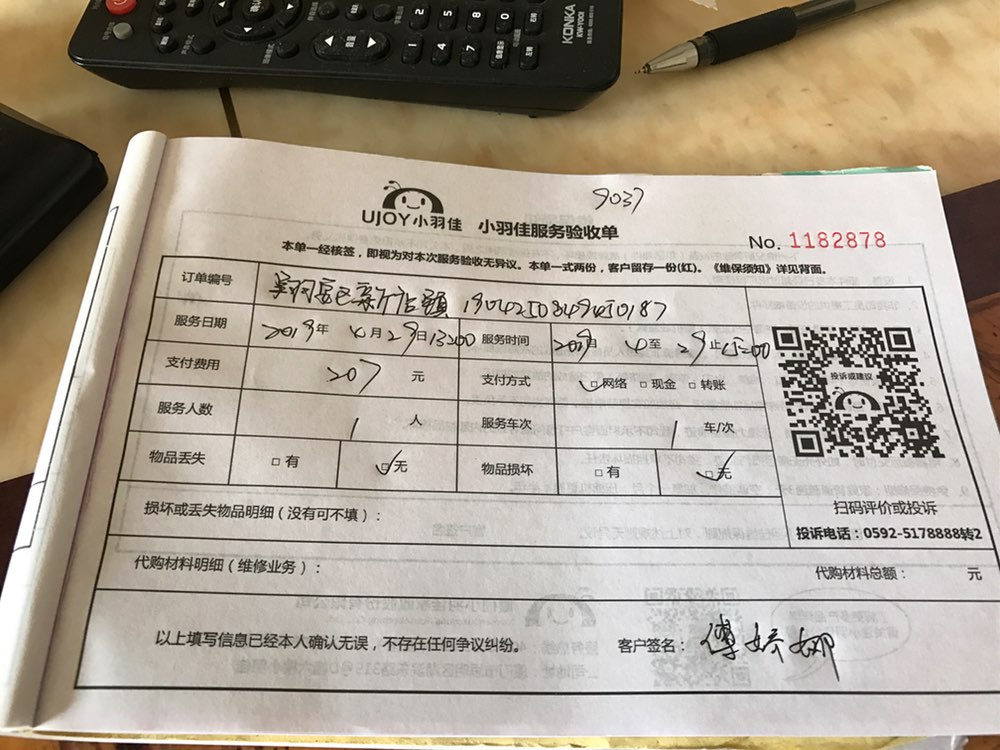 KONKA
KW-Y008
2 5 8 0
1 4 7
9037
UJOY小羽佳 小羽佳服务验收单
No. 1182878
本单一经核签，即视为对本次服务验收无异议。本单一式两份，客户留存一份(红)。《维保须知》详见背面。
订单编号
服务日期 2019年 4月29日13:00 服务时间 至 29止15:00
支付费用 207 元 支付方式 网络 现金 转账
服务人数 1 人 服务车次 1 车/次
物品丢失 有 无 物品损坏 有 无
投诉或建议
扫码评价或投诉
投诉电话：0592-5178888转2
损坏或丢失物品明细（没有可不填）：
代购材料明细（维修业务）： 代购材料总额： 元
以上填写信息已经本人确认无误，不存在任何争议纠纷。 客户签名：傅娇娜